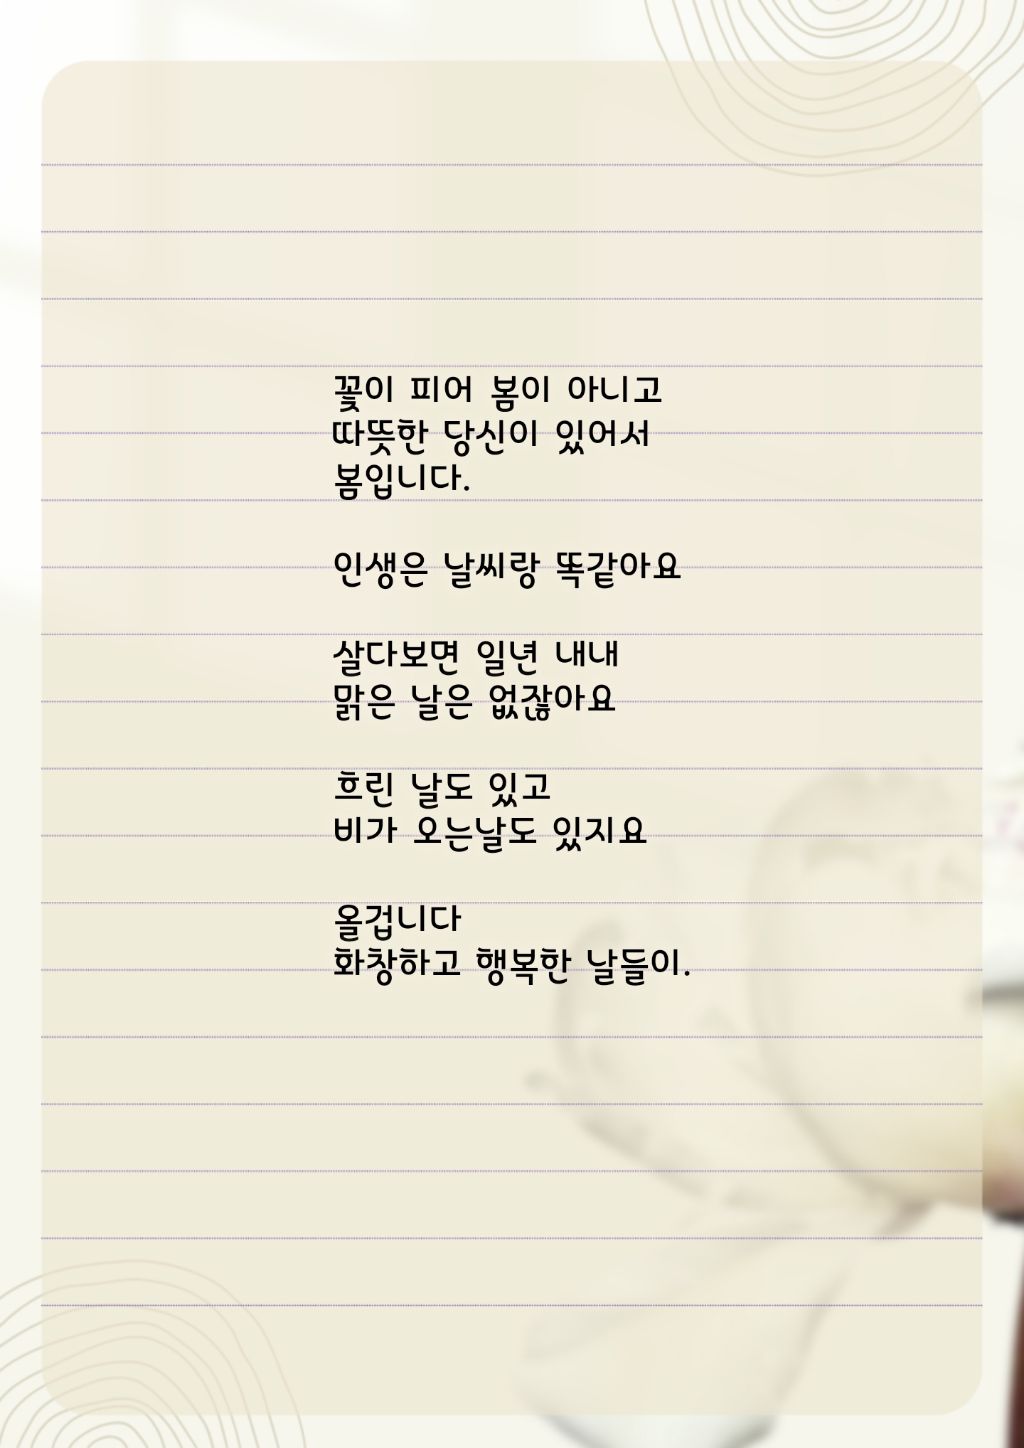 꽃이 피어 봄이 아니고
따뜻한 당신이 있어서
봄입니다.
인생은 날씨랑 똑같아요
살다보면 일년 내내
맑은 날은 없잖아요
흐린 날도 있고
비가 오는날도 있지요
올겁니다
화창하고 행복한 날들이.